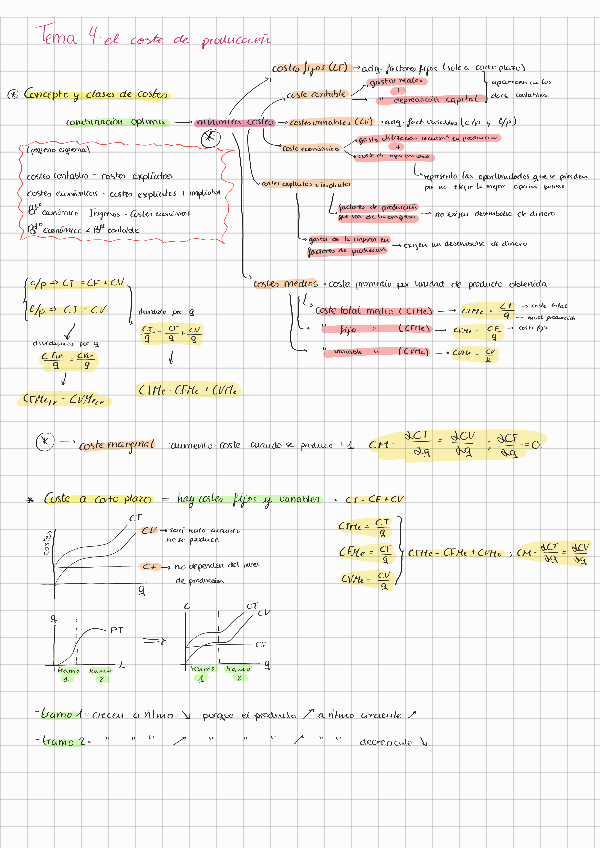 Tema 4: el coste de producción
costes fijos (CF) → adq. factores fijos (solo a corto plazo)
* Concepto y clases de costes
coste contable
gastos reales
+
" depreciación capital
aparecen en los
libros contables
combinación óptima → minimiza costes
costes variables (CV) → adq. fact variables (c/p y l/p)
*
coste económico
+
coste de oportunidad
representa las oportunidades que se pierden
por no elegir la mejor opción
costes explícitos e implícitos
costes contables = costes explícitos
costes económicos = costes explícitos + implícitos
Bº económico = Ingresos - Costes económicos
Bº económico < Bº contable
factores de producción
→ no exigen desembolso de dinero
gastos de la empresa en
factores de producción
→ exigen un desembolso de dinero
costes medios → coste promedio por unidad de producto obtenida
c/p ⇒ CT = CF + CV
l/p ⇒ CT = CV
dividido por q
CT/q = CF/q + CV/q
CTMe = CFMe + CVMe
coste total medio (CTMe) → CTMe = CT/q → coste total
→ nivel producción
" fijo " (CFMe) → CFMe = CF/q → coste fijo
" variable " (CVMe) → CVMe = CV/q
* → coste marginal = aumento coste cuando se produce +1 CM = ∂CT/∂q = ∂CV/∂q ; ∂CF/∂q = 0
* Coste a corto plazo = hay costes fijos y variables · CT = CF + CV
costes
CT
CV → será nulo cuando
no se produce
CF → no dependen del nivel
de producción
q
CTMe = CT/q
CFMe = CF/q
CVMe = CV/q
CTMe = CFMe + CVMe ; CM = ∂CT/∂q = ∂CV/∂q
q
PT
L
tramo 1
tramo 2
⇒
C
CT
CV
CF
q
tramo 1
tramo 2
- tramo 1 = crecen a ritmo ↘ porque el producto ↗ a ritmo creciente ↗
- tramo 2 = " " " ↗ " " " ↗ " " decreciente ↘